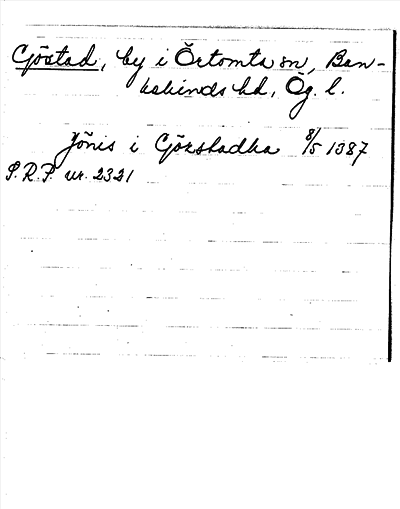 Göstad, by i Örtomta sn, Ban-
kekinds hd, Ög. l.
Jönis i Görstadha 8/5 1387
S.R.P. nr. 2321